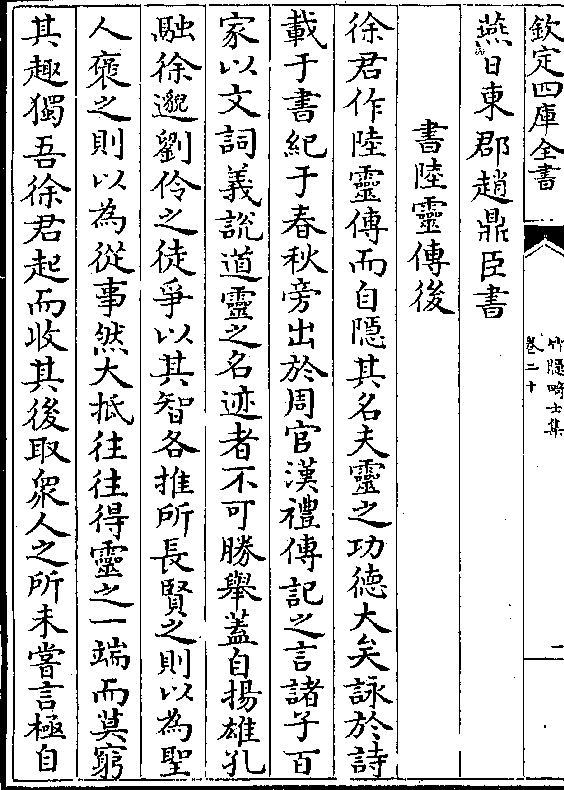 欽定四庫全書
竹隱畸士集
卷二十
二
燕日東郡趙鼎臣書
書陸靈傳後
徐君作陸靈傳而自隱其名夫靈之功德大矣詠於詩
載于書紀于春秋旁出於周官漢禮傳記之言諸子百
家以文詞義説道靈之名迹者不可勝舉蓋自揚雄孔
融徐邈劉伶之徒爭以其智各推所長賢之則以為聖
人褒之則以為從事然大抵往往得靈之一端而莫窮
其趣獨吾徐君起而收其後取衆人之所未嘗言極自